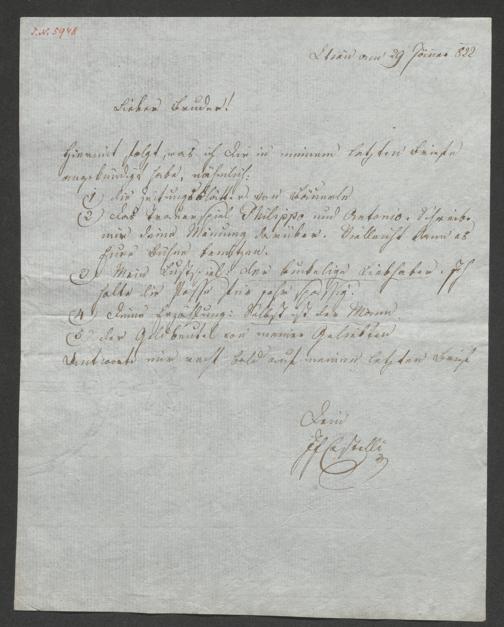 I.N. 5948
Wien am 29 Jänner 822
Lieber Bruder!
Hiermit folgt, was ich dir in meinem letzten Briefe
angekündigt habe, nähmlich:
1) die Zeitungsblätter von Bäuerle
2) das Trauerspiel Philippo und Antonio. Schreibe
mir deine Meinung darüber. Vielleicht kann es
Eure Bühne benützen.
3) Mein Lustspiel: der buckelige Liebhaber. Ich
halte die Posse für sehr spassig.
4) Meine Erzählung: Selbst ist der Mann
5) der Geldbeutel von meiner Geliebten
Antworte mir recht bald auf meinen letzten Brief
Dein
JfCastelli